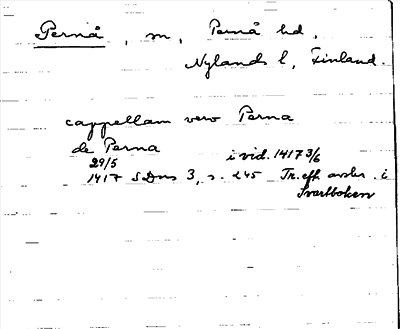 Pernå, m, Pernå hd,
Nylands l, Finland.
cappellam vero Perna
de Perna
29/5 i vid. 1417 3/6
1417 SDns 3, s. 245 Tr. eft. avskr. i
Svartboken